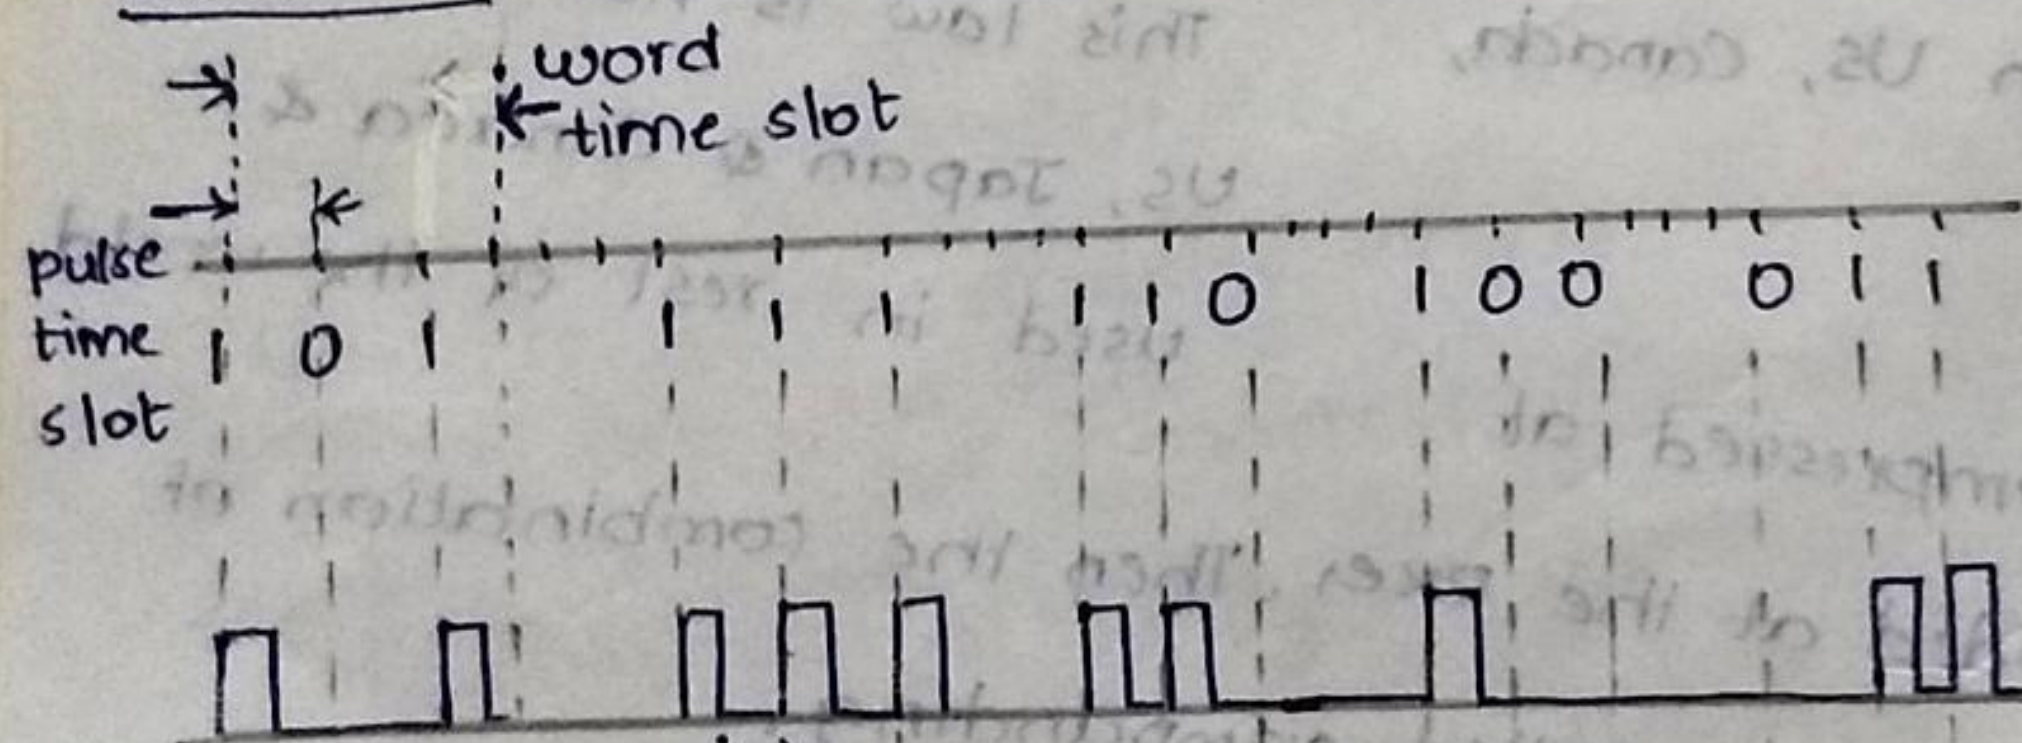 word
time slot
pulse
time
slot
1 0 1 1 1 1 1 1 0 1 0 0 0 1 1